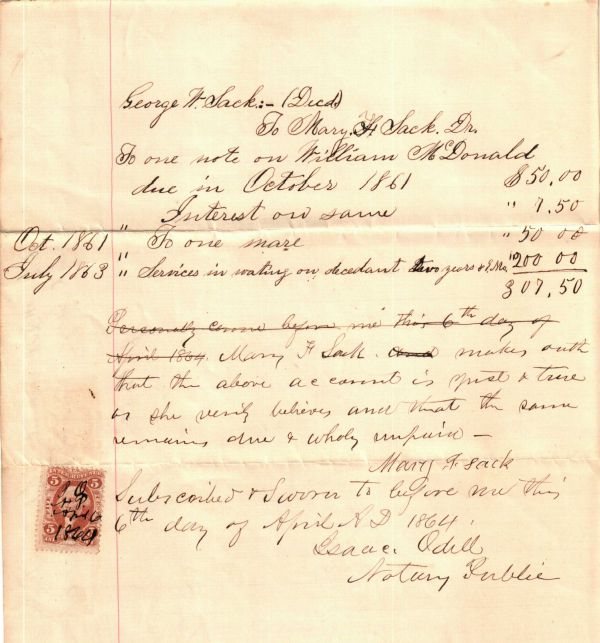 George W. Sack:- (Decd)
To Mary. F Sack. Dr.
To one note on William McDonald
due in October 1861 $50.00
Interest on same " 7.50
Oct. 1861 " To one mare " 50 00
July 1863 " Services in wating on decedant two years & 8 Mo. " 200 00
307.50
Personally come before me this 6th day of
April 1864. Mary F Sack. and makes outh
that the above account is just & true
as she verily believes and that the same
remains due & wholy unpaid -
Mary F Sack
Subscribed & Sworn to before me this
6th day of April A D 1864.
Isaac. Odell
Notary Public
5 5
I O
April 6
1864
5 5